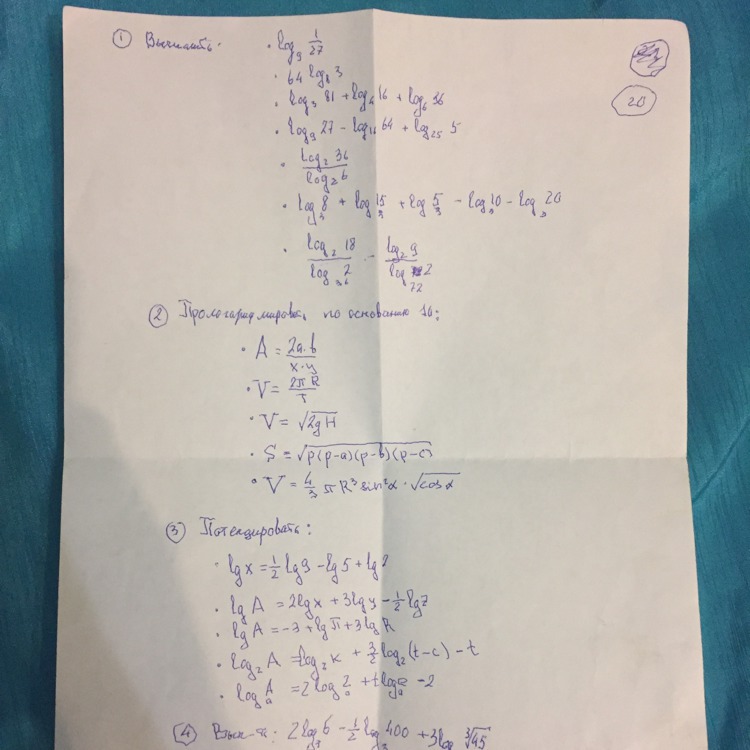 ① Вычислить: • log₉ 1/27
20
• 64^log₈ 3
• log₃ 81 + log₄ 16 + log₆ 36
• log₉ 27 − log₁₆ 64 + log₂₅ 5
• log₂ 36 / log₂ 6
• log₃ 8 + log₃ 15 + log₃ 5 − log₃ 10 − log₃ 20
• log₂ 18 / log₃₆ 2 − log₂ 9 / log₇₂ 2
② Прологарифмировать по основанию 10:
• A = 2a·b / x·y
• V = 2πR / T
• V = √2gH
• S = √p(p−a)(p−b)(p−c)
• V = 4/3 πR³ sin²α · √cosα
③ Потенцировать:
• lg x = 1/2 lg 9 − lg 5 + lg 2
• lg A = 2lg x + 3lg y − 1/2 lg z
• lg A = −3 + lg π + 3lg R
• log₂ A = log₂ k + 3/2 log₂ (t−c) − t
• logₐ A = 2 logₐ 2 + t logₐ − 2
④ 2log₃ 6 − 1/2 log₃ 400 + 3log ³√45